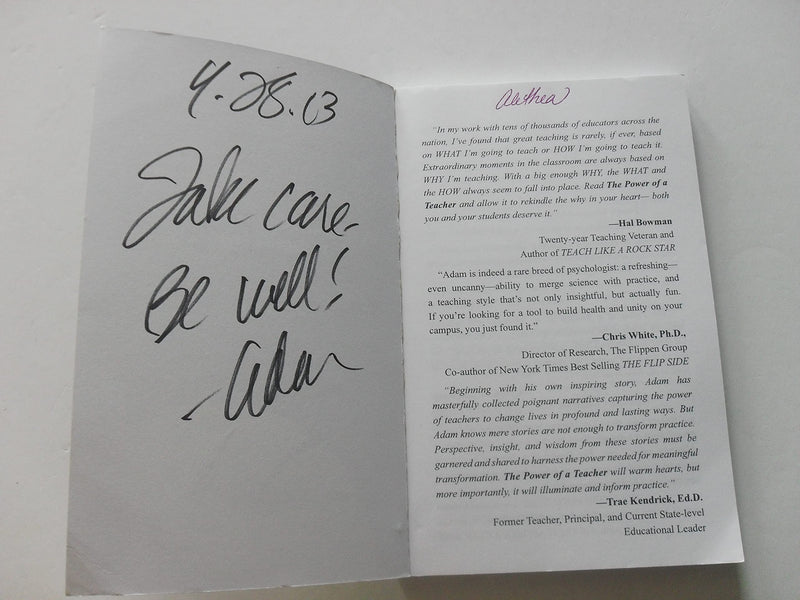 4.28.13
Take care.
Be well!
-Adam
Alethea
"In my work with tens of thousands of educators across the
nation, I've found that great teaching is rarely, if ever, based
on WHAT I'm going to teach or HOW I'm going to teach it.
Extraordinary moments in the classroom are always based on
WHY I'm teaching. With a big enough WHY, the WHAT and
the HOW always seem to fall into place. Read The Power of a
Teacher and allow it to rekindle the why in your heart— both
you and your students deserve it."
—Hal Bowman
Twenty-year Teaching Veteran and
Author of TEACH LIKE A ROCK STAR
"Adam is indeed a rare breed of psychologist: a refreshing—
even uncanny—ability to merge science with practice, and
a teaching style that's not only insightful, but actually fun.
If you're looking for a tool to build health and unity on your
campus, you just found it."
—Chris White, Ph.D.,
Director of Research, The Flippen Group
Co-author of New York Times Best Selling THE FLIP SIDE
"Beginning with his own inspiring story, Adam has
masterfully collected poignant narratives capturing the power
of teachers to change lives in profound and lasting ways. But
Adam knows mere stories are not enough to transform practice.
Perspective, insight, and wisdom from these stories must be
garnered and shared to harness the power needed for meaningful
transformation. The Power of a Teacher will warm hearts, but
more importantly, it will illuminate and inform practice."
—Trae Kendrick, Ed.D.
Former Teacher, Principal, and Current State-level
Educational Leader